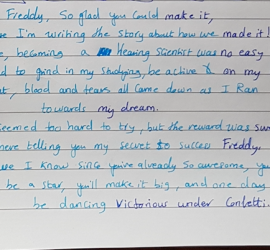 Freddy, So glad you could make it,
I'm writing the story about how we made it!
becoming a Hearing Scientist was no easy
to grind in my studying, be active & on my
blood and tears all came down as I Ran
towards my dream.
seemed too hard to try, but the reward was
here telling you my secret to success Freddy.
I know since you've already So awesome,
be a star, you'll make it big, and one day
be dancing Victorious under Confetti.